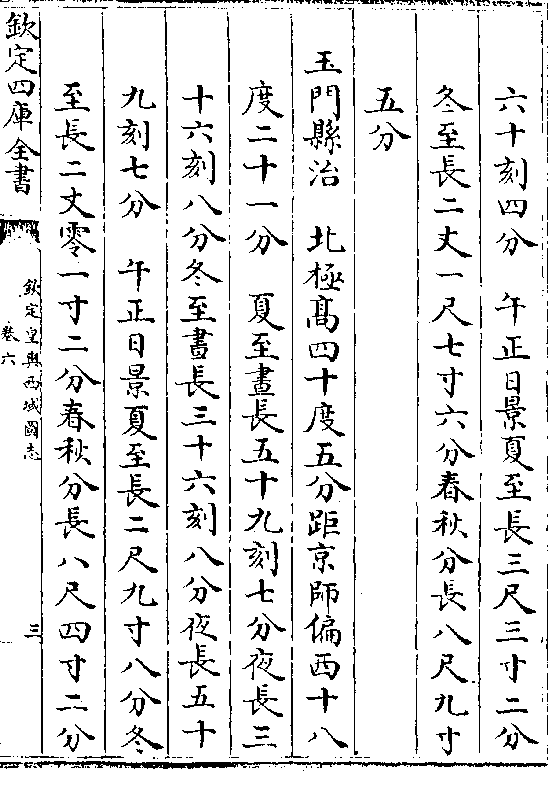 六十刻四分　午正日景夏至長三尺三寸二分
冬至長二丈一尺七寸六分春秋分長八尺九寸
五分
玉門縣治　北極髙四十度五分距京師偏西十八
度二十一分　夏至晝長五十九刻七分夜長三
十六刻八分冬至晝長三十六刻八分夜長五十
九刻七分　午正日景夏至長二尺九寸八分冬
至長二丈零一寸二分春秋分長八尺四寸二分
欽定四庫全書
欽定皇輿西域圖志
卷六
三